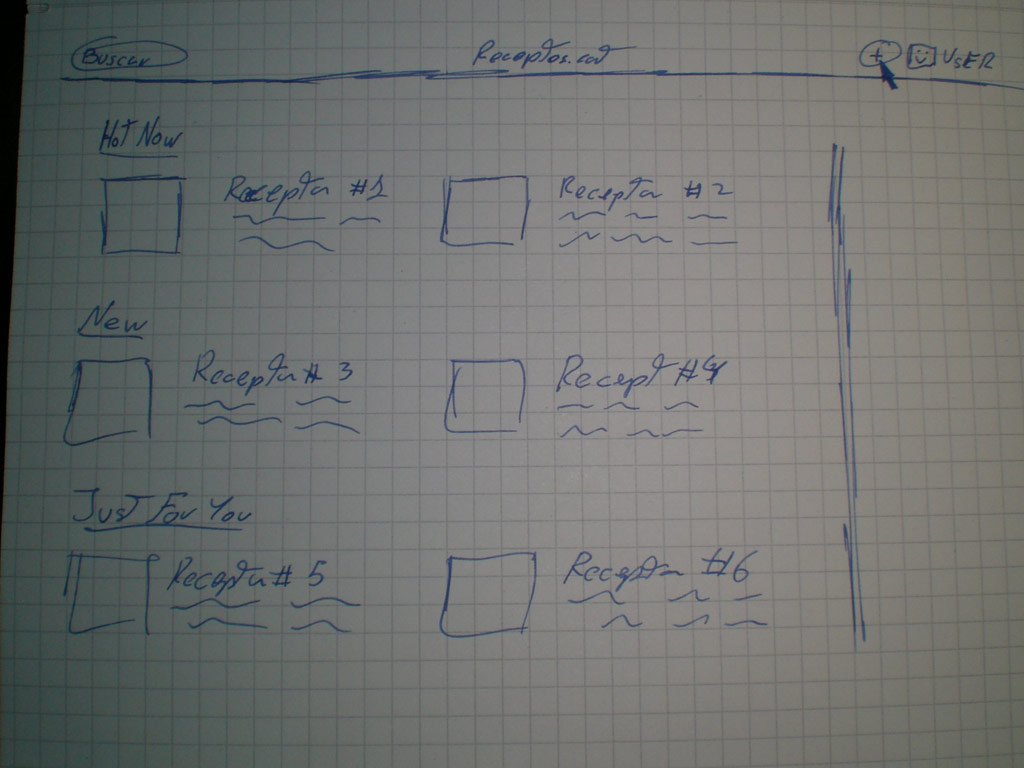 Buscar
Receptos.cat
+ USER
Hot Now
Recepta #1
Recepta #2
New
Recepta # 3
Recept #4
Just For You
Recepta # 5
Recepta #6